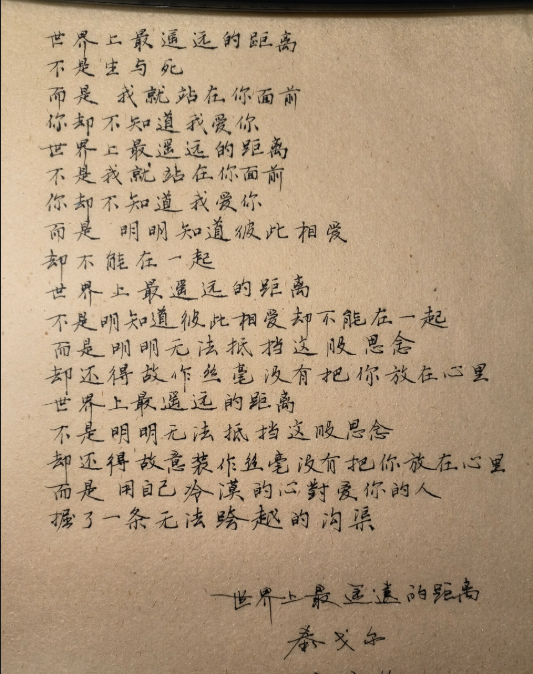 世界上最遥远的距离
不是生与死
而是 我就站在你面前
你却不知道我爱你
世界上最遥远的距离
不是我就站在你面前
你却不知道我爱你
而是 明明知道彼此相爱
却不能在一起
世界上最遥远的距离
不是明知道彼此相爱却不能在一起
而是明明无法抵挡这股思念
却还得故作丝毫没有把你放在心里
世界上最遥远的距离
不是明明无法抵挡这股思念
却还得故意装作丝毫没有把你放在心里
而是 用自己冷漠的心對爱你的人
掘了一条无法跨越的沟渠
世界上最遥远的距离
泰戈尔